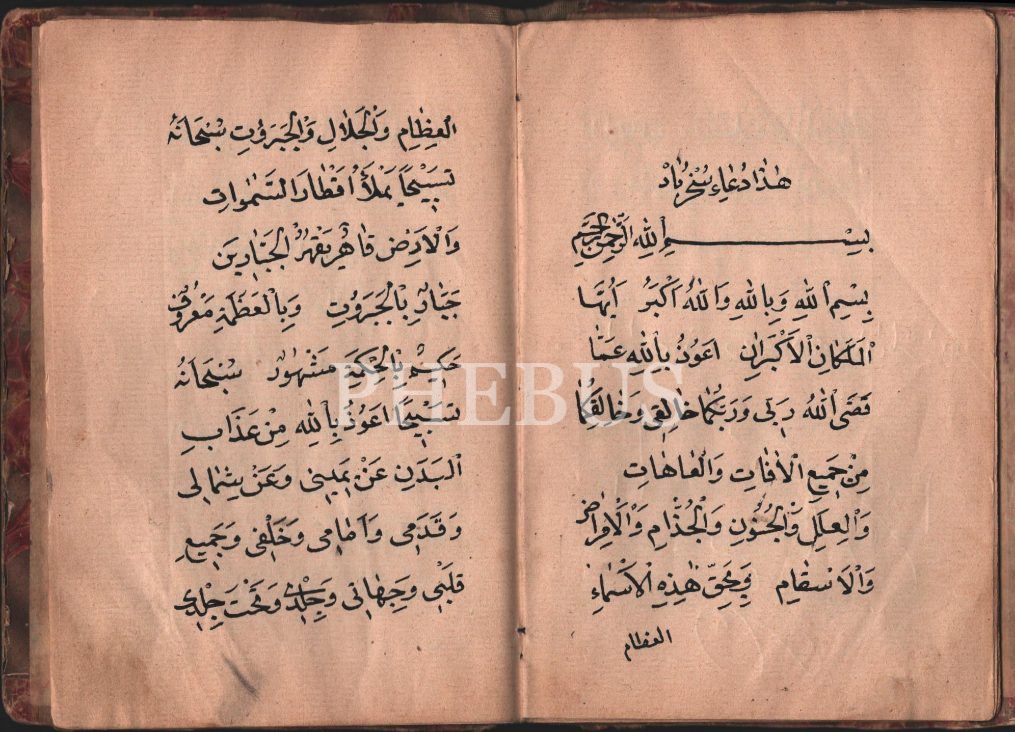 هٰذَا دُعَاءِ سُرْخِ بَادْ
بِسْمِ اللهِ الرَّحْمٰنِ الرَّحِيمِ
بِسْمِ اللهِ وَبِاللهِ وَاللهُ اَكْبَرُ اَيُّهَا
الْمَلَكَانِ الْاَكْبَرَانِ اَعُوذُ بِاللهِ عَمَّا
قَضَى اللهُ رَبّى وَرَبُّكُمَا خَالِقى وَخَالِقُكُمَا
مِنْ جَمِيعِ الْاٰفَاتِ وَالْعَاهَاتِ
وَالْعِلَلِ وَالْجُنُونِ وَالْجُذَامِ وَالْاَمْرَاضِ
وَالْاَسْقَامِ وَبِحَقِّ هٰذِهِ الْاَسْمَاءِ
العظام
الْعِظَامِ وَالْجَلَالِ وَالْجَبَرُوتِ سُبْحَانَهُ
تَسْبِيحًا يَمْلَأُ اَقْطَارَ السَّمٰوَاتِ
وَالْاَرْضِ قَاهِرٌ يَقْهَرُ الْجَبَّارِينَ
جَبَّارٌ بِالْجَبَرُوتِ وَبِالْعَظَمَةِ مَعْرُوفٌ
حَكِيمٌ بِالْحِكْمَةِ مَشْهُورٌ سُبْحَانَهُ
تَسْبِيحًا اَعُوذُ بِاللهِ مِنْ عَذَابِ
الْبَدَنِ عَنْ يَمِينى وَعَنْ شِمَالى
وَقَدَمى وَاَمَامى وَخَلْفى وَجَمِيعِ
قَلْبى وَجِهَاتى وَجِلْدى وَتَحْتَ جِلْدى
PHEBUS